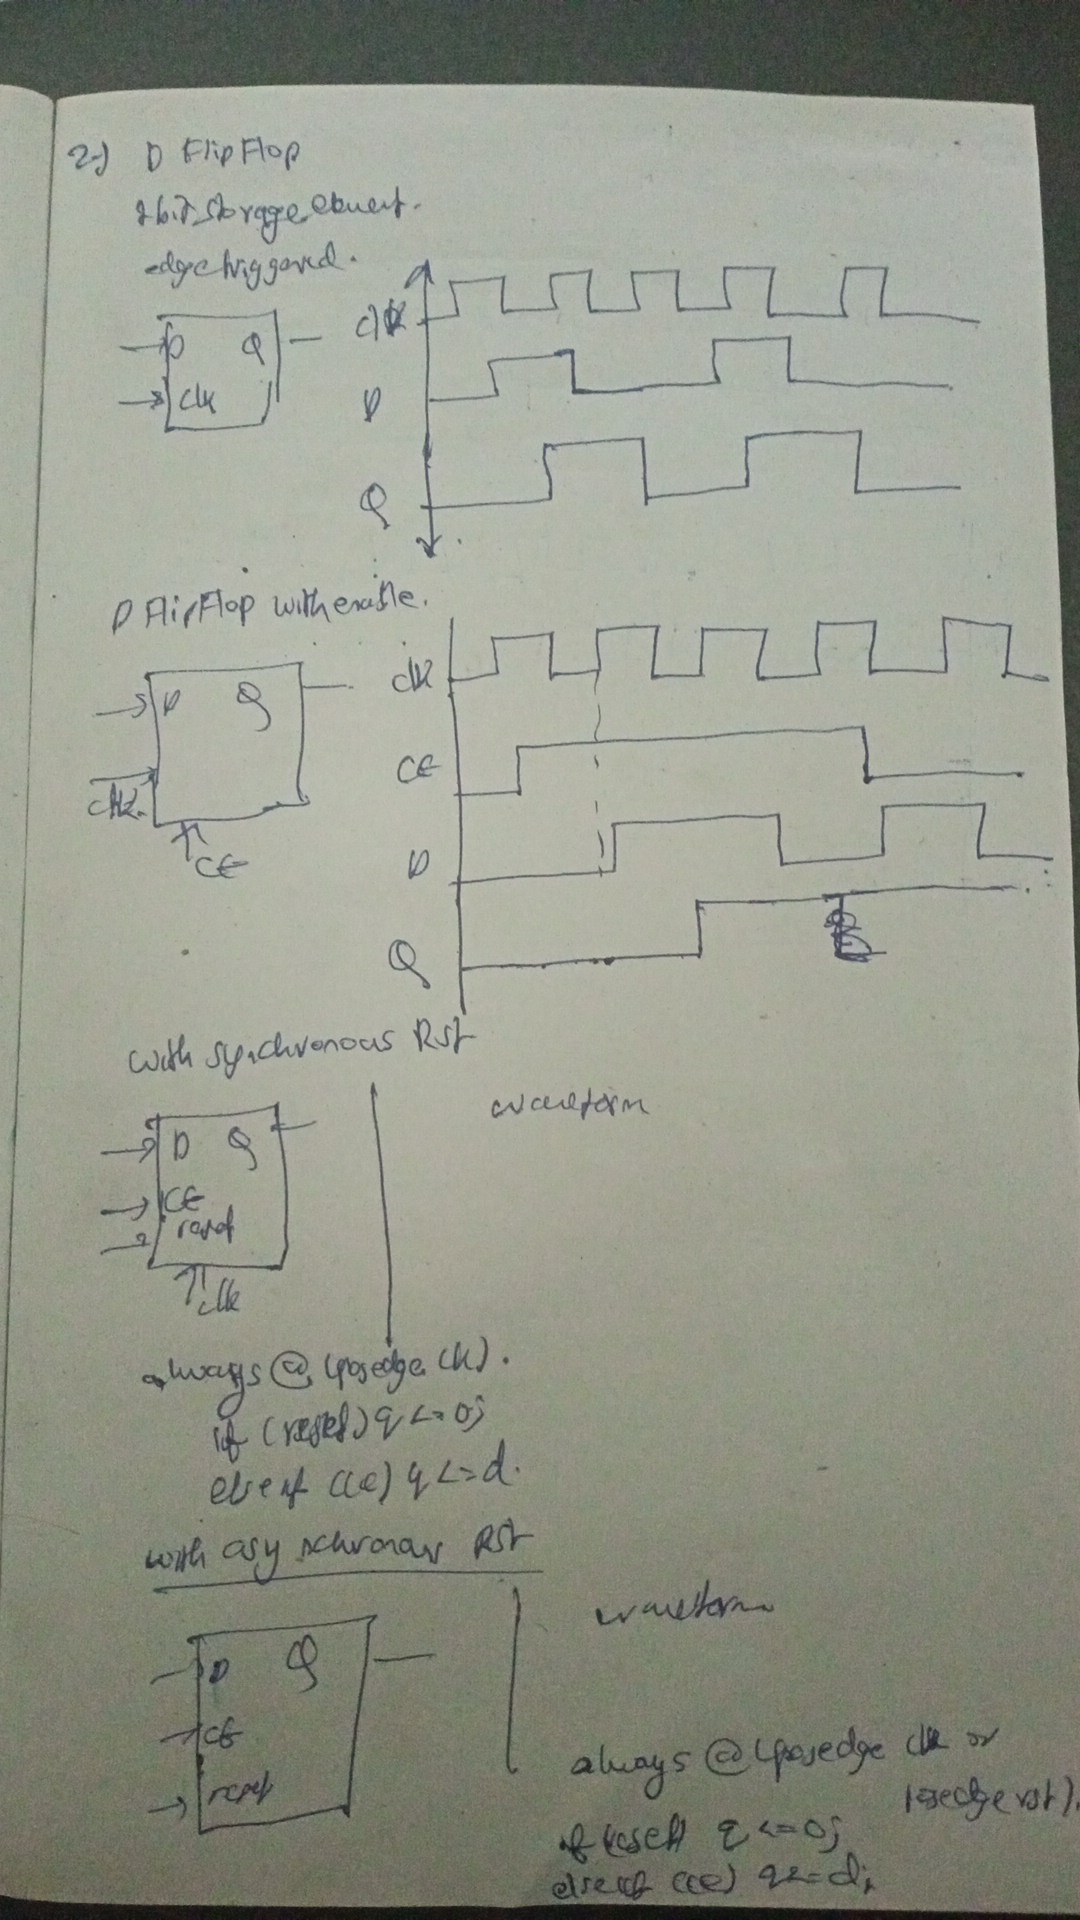 2-) D FlipFlop
1 bit storage element.
edge triggered.
D Q
clk
clk
D
Q
D FlipFlop with enable.
D Q
clk.
CE
clk
CE
D
Q
with synchronous Rst
D Q
CE
reset
clk
waveform
always @ (posedge clk).
if (reset) q <= 0;
else if (ce) q <= d.
with asynchronous Rst
D Q
CE
reset
waveform
always @ (posedge clk or
posedge rst).
if (reset) q <= 0;
else if (ce) q <= d;